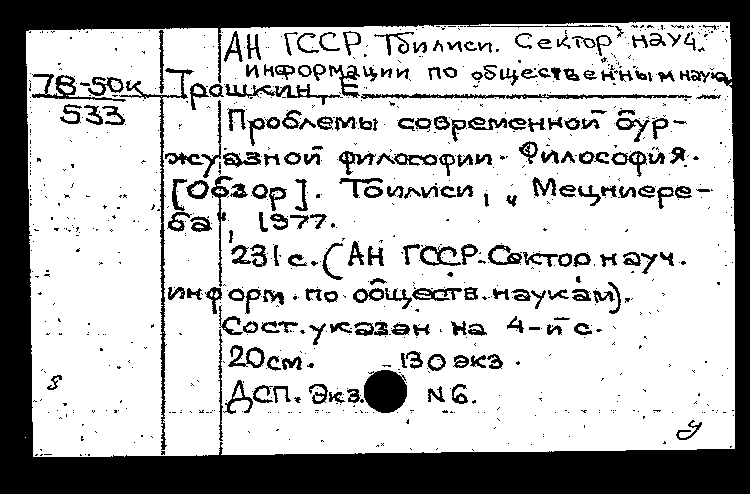 АН ГССР. Тбилиси. Сектор науч.
информации по общественным наукам
78-50к Трошкин, Е.
533
Проблемы современной бур-
жуазной философии. Философия.
[Обзор]. Тбилиси, „Мецниере-
ба", 1977.
231 с. (АН ГССР. Сектор науч.
информ. по обществ. наукам).
Сост. указан на 4-й с.
20см. 130 экз.
ДСП. Экз. N6.
8
У